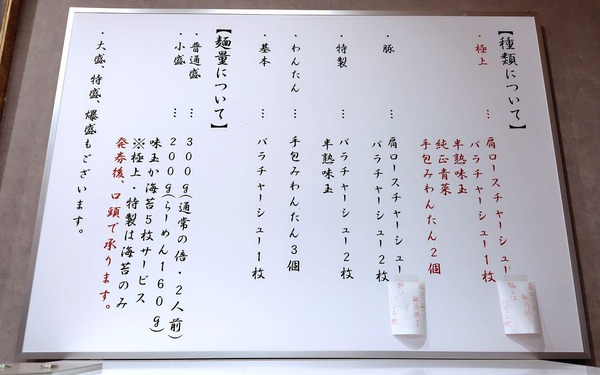 【種類について】
・極上 … 肩ロースチャーシュー
バラチャーシュー1枚
半熟味玉
純正青菜
手包みわんたん2個
・豚 … 肩ロースチャーシュー2枚
バラチャーシュー2枚
・特製 … バラチャーシュー2枚
半熟味玉
・わんたん … 手包みわんたん3個
・基本 … バラチャーシュー1枚
【麺量について】
・普通盛 … 300g(通常の倍・2人前)
・小盛 … 200g(らーめん160g)
味玉か海苔5枚サービス
※極上・特製は海苔のみ
発券後、口頭で承ります。
・大盛、特盛、爆盛もございます。